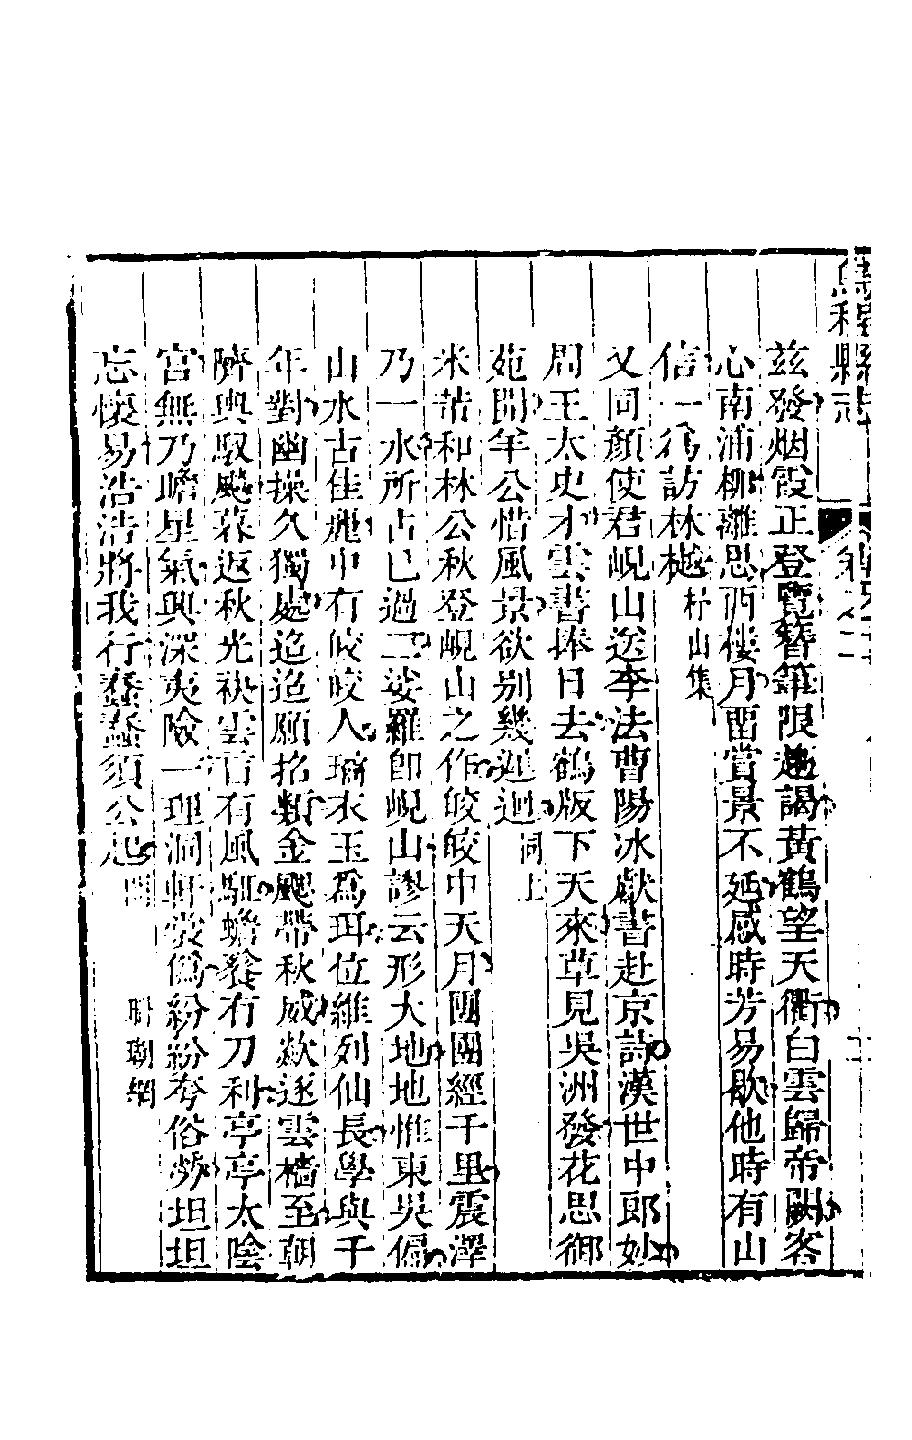 烏程縣志
卷之二
茲發烟霞正登覽簪筆限趨謁黃鶴望天衢白雲歸帝闕客
心南浦柳離思西樓月留賞景不延感時芳易歇他時有山
信一爲訪林樾 杼山集
又同顏使君峴山送李法曹陽冰獻書赴京詩漢世中郎妙
周王太史才雲書捧日去鶴版下天來草見吳洲發花思御
苑開羊公惜風景欲別幾遲迴 同上
米芾和林公秋登峴山之作皎皎中天月團團經千里震澤
乃一水所占已過二娑羅卽峴山謬云形大地地惟東吳偏
山水古佳麗中有皎皎人瓊衣玉爲珥位維列仙長學與千
年對幽操久獨處迢迢願招類金飈帶秋威歘逐雲檣至朝
隮輿馭飈暮返秋光袂雲盲有風馭蟾餮有刀利亭亭太陰
宮無乃瞻星氣興深夷險一理洞軒裳僞紛紛夸俗勞坦坦
忘懷易浩浩將我行蠢蠢須公起 珊瑚網